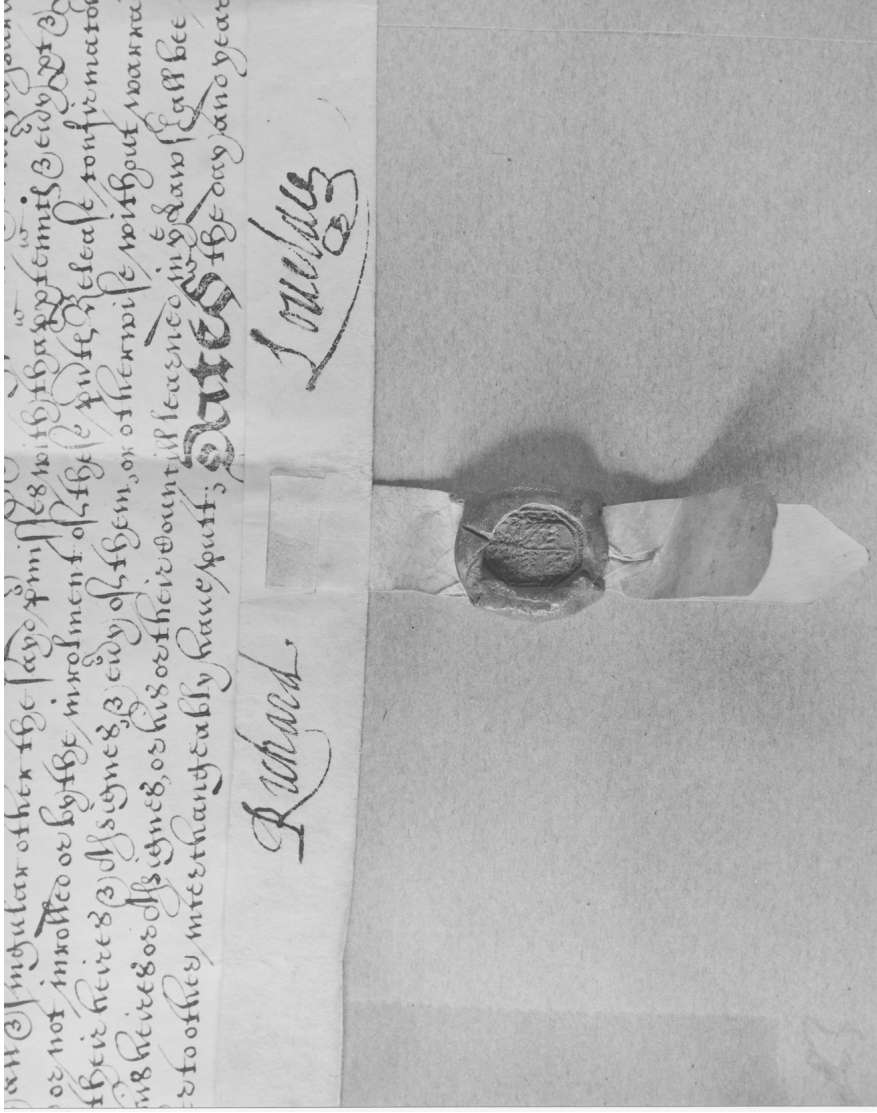 all & singular other the sayd pmisses with thapptennts & evy pt &
or not inrolled or by the inrolment of these pnts, Release confirmator
their heires & Assignes, & evy of them, or otherwise without warra
his heires or Assignes, or his or their Councell learned in y Law shall bee
to other interchangeably have putt; Dated the day and year
Richard Lovelace